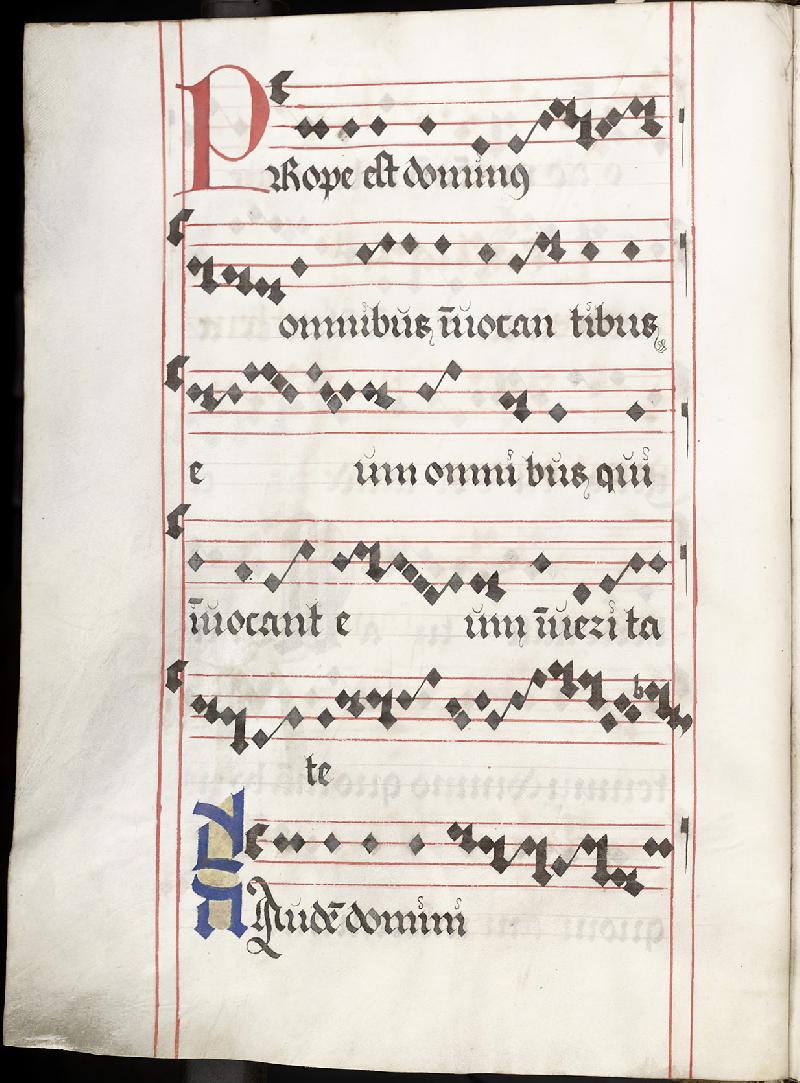 PRope est dominꝰ
omnibus īuocan tibus
e um omni bus qui
īuocant e um īueri ta
te
LAudē domini